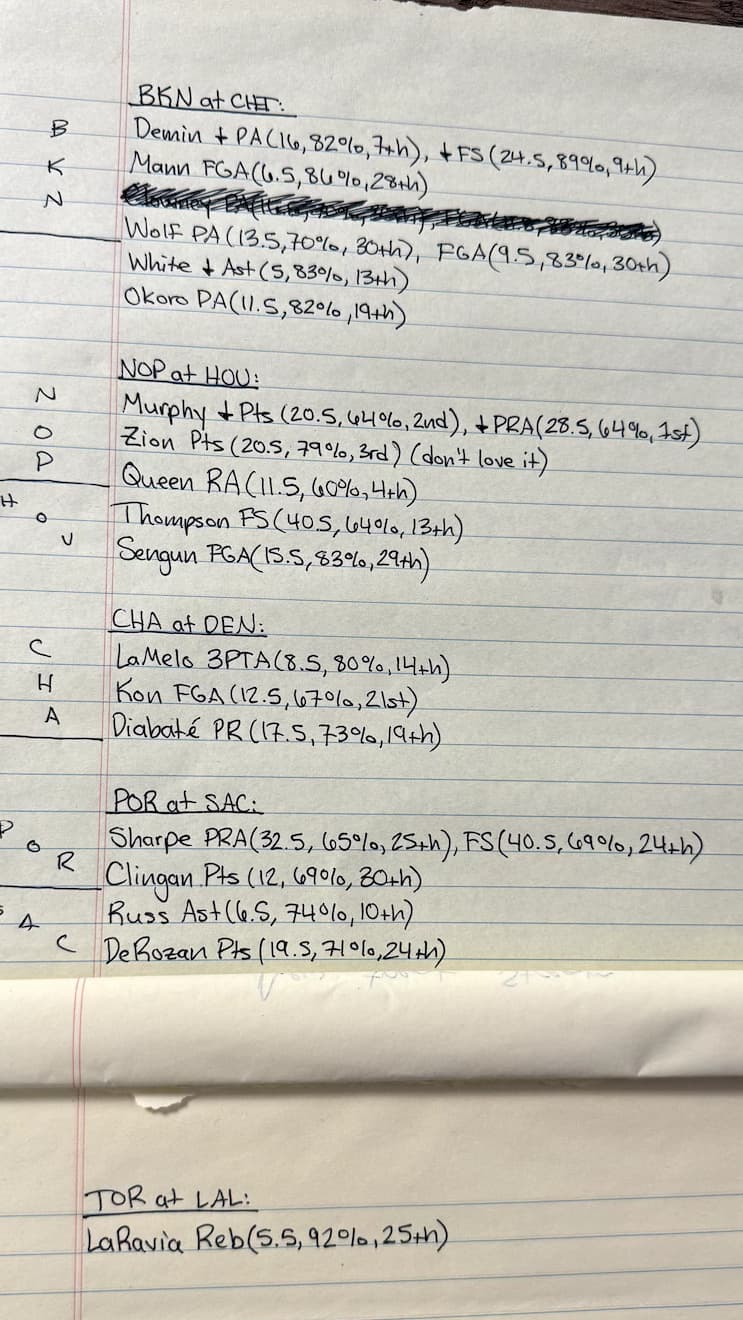 BKN at CHI:
B
Demin ↓ PA(16,82%,7th), ↓FS(24.5,89%,9th)
K
Mann FGA(6.5,86%,28th)
N
Wolf PA(13.5,70%,30th), FGA(9.5,83%,30th)
White ↓ Ast(5,83%,13th)
Okoro PA(11.5,82%,19th)
NOP at HOU:
N
Murphy ↓ Pts(20.5,64%,2nd), ↓PRA(28.5,64%,1st)
O
Zion Pts(20.5,79%,3rd)(don't love it)
P
Queen RA(11.5,60%,4th)
H
O
Thompson FS(40.5,64%,13th)
U
Sengun FGA(15.5,83%,29th)
CHA at DEN:
C
LaMelo 3PTA(8.5,80%,14th)
H
Kon FGA(12.5,67%,21st)
A
Diabaté PR(17.5,73%,19th)
POR at SAC:
P
O
Sharpe PRA(32.5,65%,25th), FS(40.5,69%,24th)
R
Clingan Pts(12,69%,30th)
S
A
Russ Ast(6.5,74%,10th)
C
DeRozan Pts(19.5,71%,24th)
TOR at LAL:
LaRavia Reb(5.5,92%,25th)